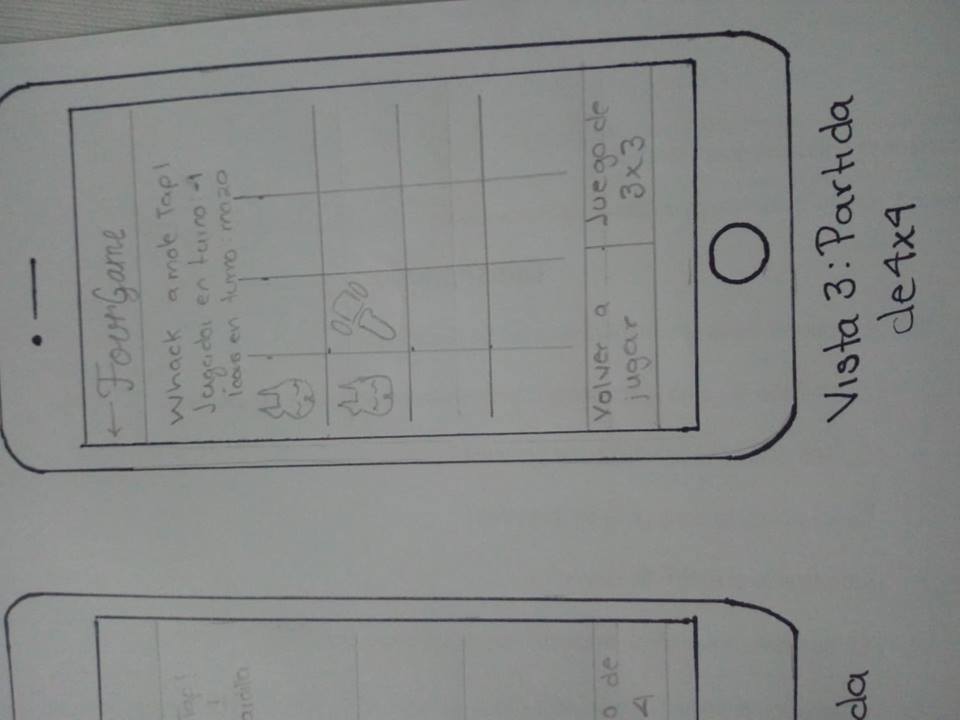 ← FourGame
Whack a mole Tap!
Jugador en turno: 1
en turno: mazo
Volver a
jugar
Juego de
3x3
Vista 3: Partida
de 4x4
Tap!
o de
4
da